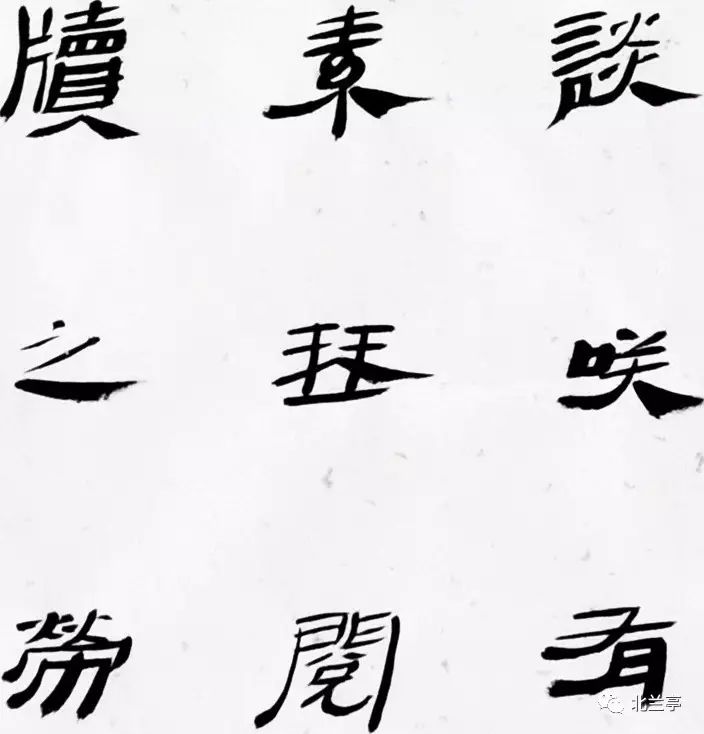 談咲有
素琴閱
牘之勞
北兰亭